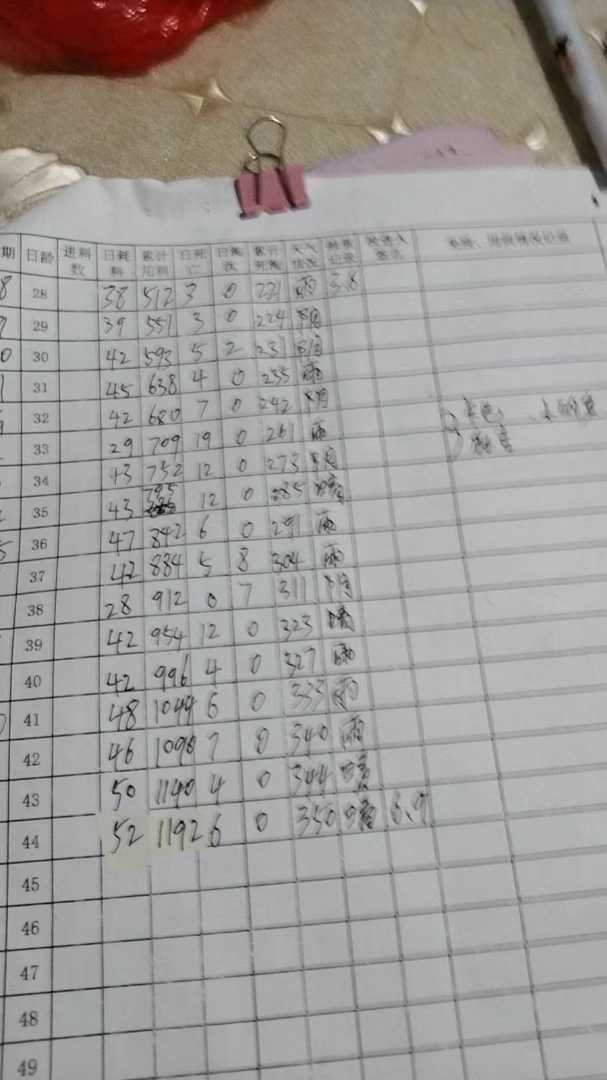 期 日龄 进料数 日耗料 累计用料 日死亡 日淘汰 累计死淘 天气情况 称重记录
8 28 38 512 3 0 221 雨 3.8
29 39 551 3 0 224 阴
0 30 42 593 5 2 231 阴
1 31 45 638 4 0 235 雨
32 42 680 7 0 242 阴
33 29 709 19 0 261 雨
34 43 752 12 0 273 阴
35 43 795 12 0 285 晴
36 47 842 6 0 291 雨
37 42 884 5 8 304 雨
38 28 912 0 7 311 阴
39 42 954 12 0 323 晴
40 42 996 4 0 327 雨
41 48 1044 6 0 333 雨
42 46 1090 7 0 340 雨
43 50 1140 4 0 344 晴
44 52 1192 6 0 350 晴 6.9
45
46
47
48
49